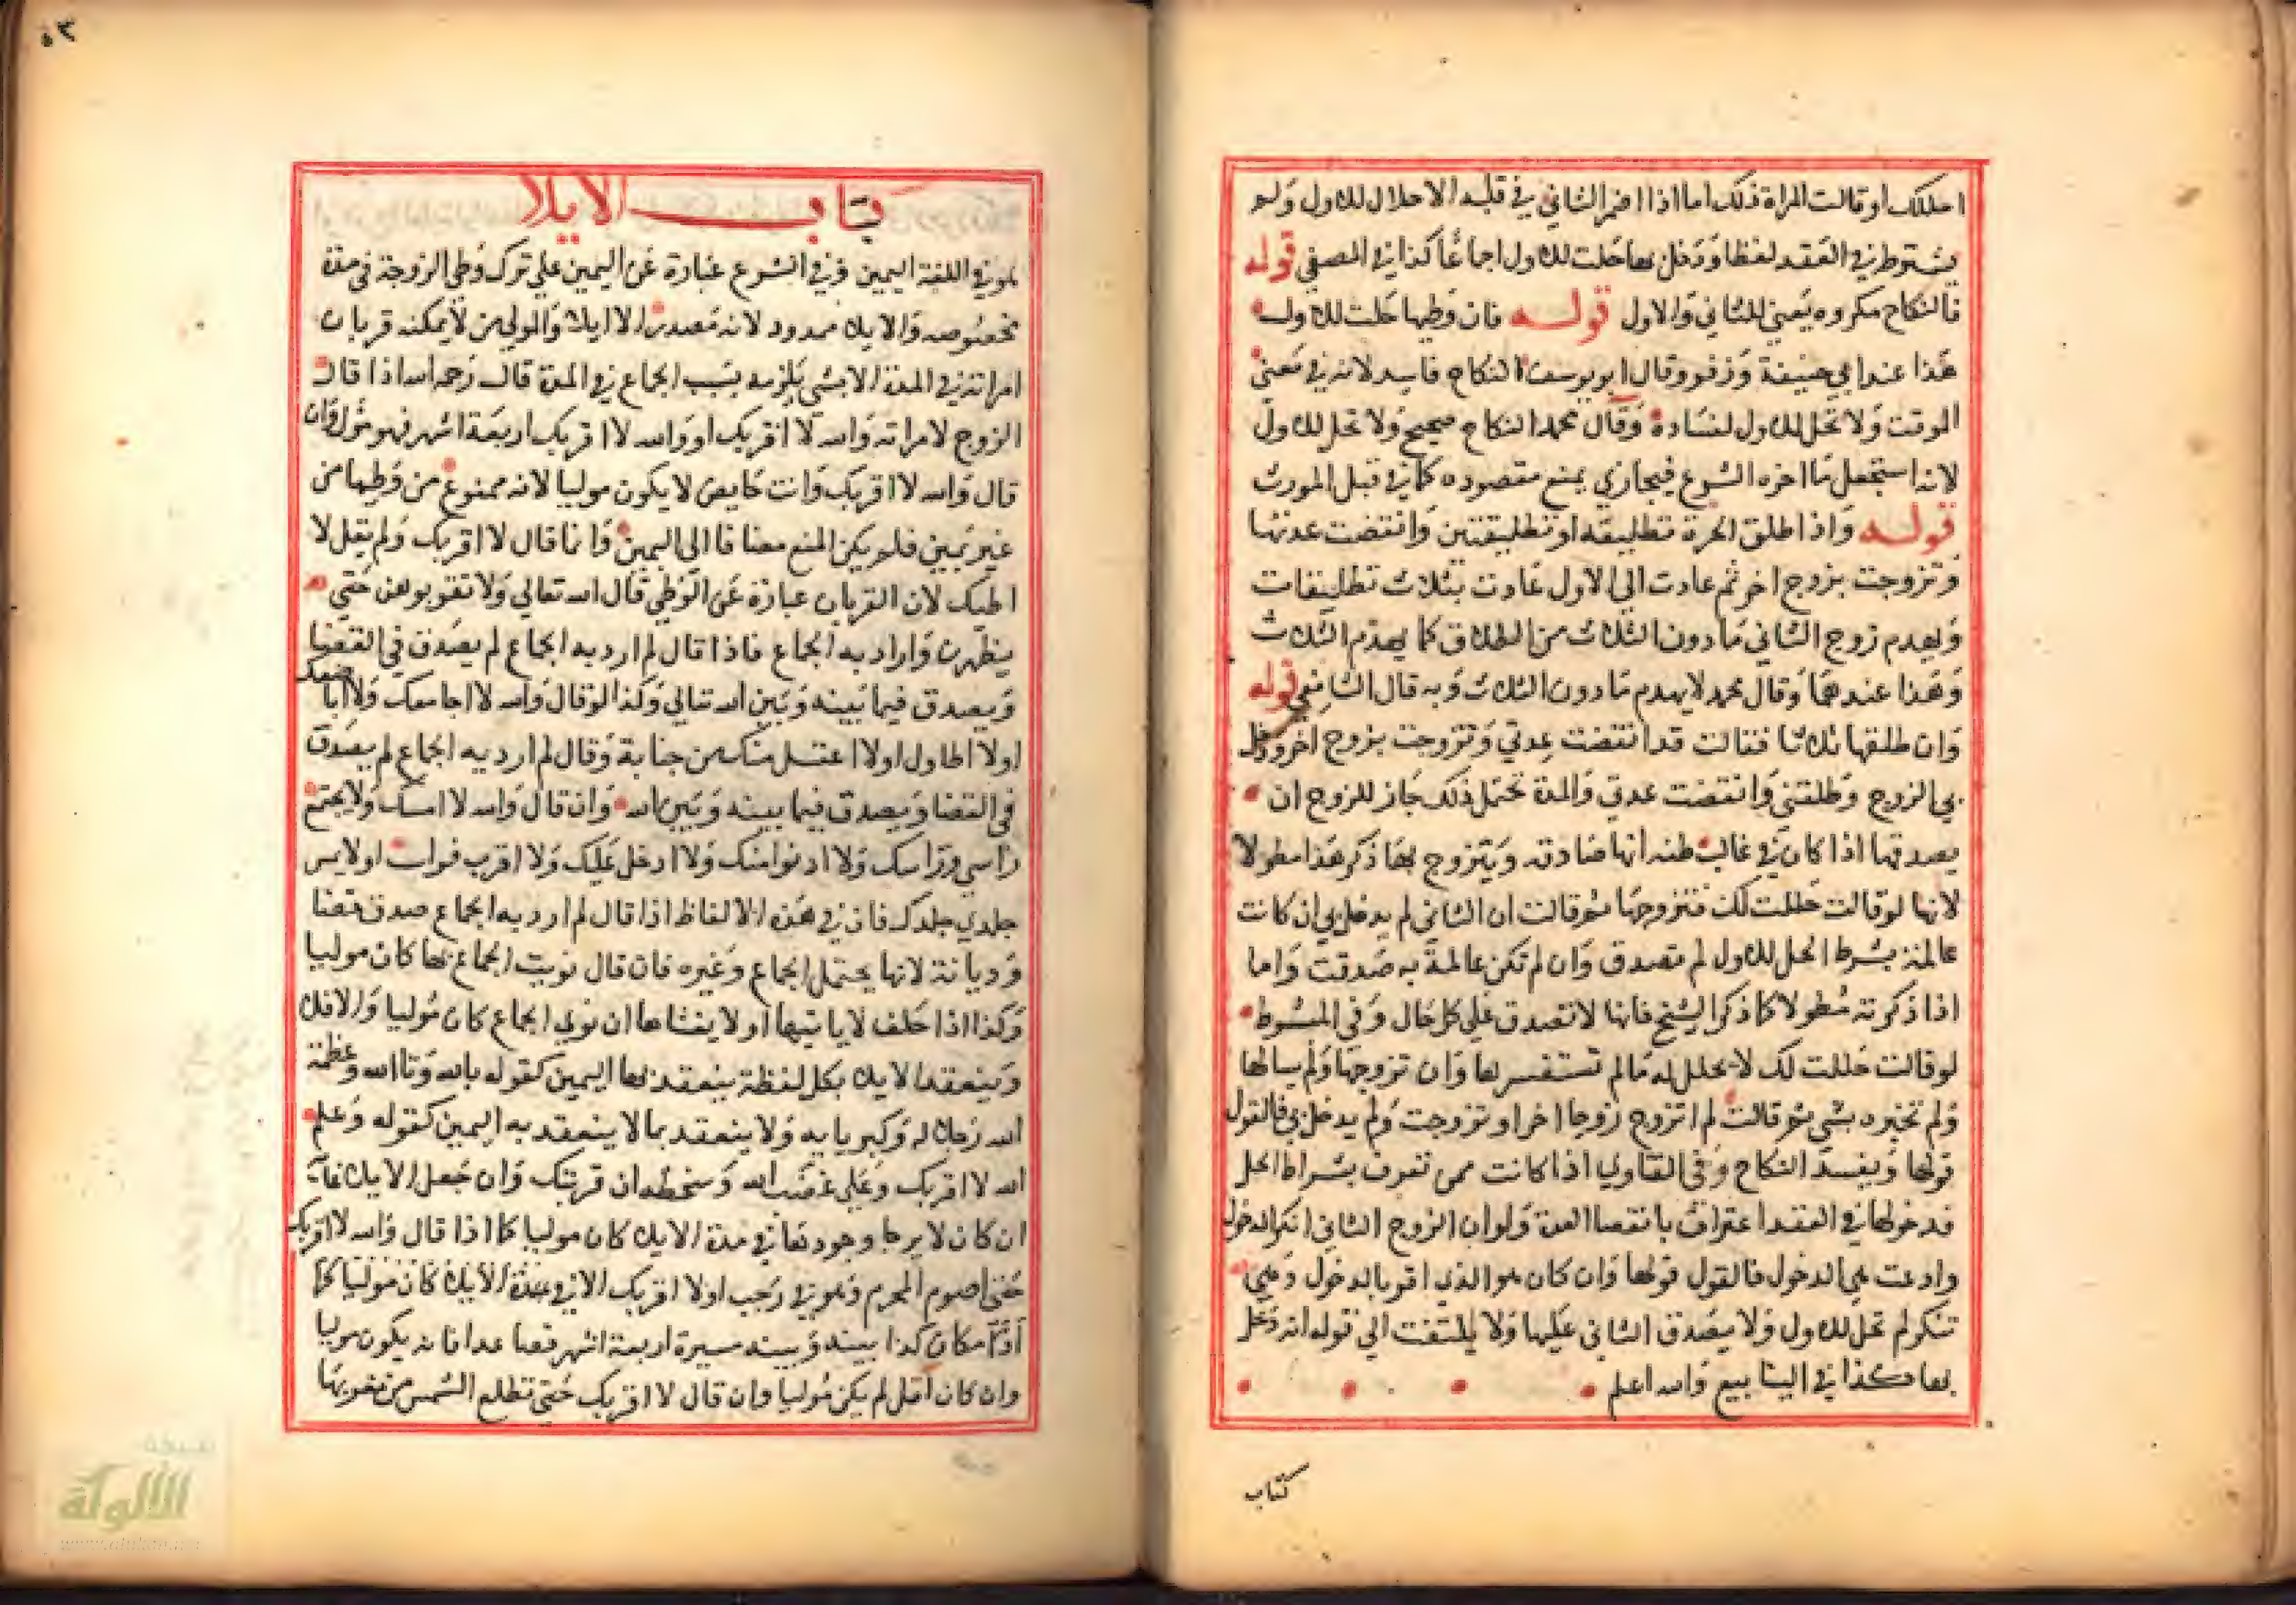 احللك او قالت المراة ذلك اما اذا اضمر الثاني في قلبه الاحلال للاول ولم
يشترط في العقد لفظا ودخل بها حلت للاول اجماعا كذا في المصفي قوله
فالنكاح مكروه يعني للثاني والاول قوله فان وطيها حلت للاول
هذا عند ابي حنيفة وزفر وقال ابو يوسف النكاح فاسد لانه في معني
الموقت ولا تحل للاول لفساده وقال محمد النكاح صحيح ولا تحل للاول
لانه استعجل ما اخره الشرع فيجازي بمنع مقصوده كما في قبل المورث
قوله واذا طلق الحرة تطليقة او تطليقتين وانقضت عدتها
وتزوجت بزوج اخر ثم عادت الي الاول عادت بثلاث تطليقات
ويهدم زوج الثاني ما دون الثلاث من الطلاق كما يهدم الثلاث
وهذا عندهما وقال محمد لا يهدم ما دون الثلاث وبه قال الشافعي قوله
وان طلقها ثلاثا فقالت قد انقضت عدتي وتزوجت بزوج اخر ودخل
بي الزوج وطلقني وانقضت عدتي والمدة تحتمل ذلك جاز للزوج ان
يصدقها اذا كان في غالب ظنه انها صادقة ويتزوج بها ذكر هذا مطولا
لانها لو قالت حللت لك فتزوجها ثم قالت ان الثاني لم يدخل بي ان كانت
عالمة بشرط الحل للاول لم تصدق وان لم تكن عالمة به صدقت واما
اذا ذكرته مطولا كما ذكر الشيخ فانها لا تصدق علي كل حال وفي المبسوط
لو قالت حللت لك لا تحلل له ما لم تستفسرها وان تزوجها ولم يسالها
ولم تخبره بشي ثم قالت لم اتزوج زوجا اخر او تزوجت ولم يدخل بي فالقول
قولها ويفسد النكاح وفي الفتاوي اذا كانت ممن تعرف بشراط الحل
فدخولها في العقد اعتراف بانقضا العدة ولو ان الزوج الثاني انكر الدخول
وادعت هي الدخول فالقول قولها وان كان هو الذي اقر بالدخول وهي
تنكر لم تحل للاول ولا يصدق الثاني عليها ولا يلتفت الي قوله انه دخل
بها هكذا في الينابيع والله اعلم
كتاب
٥٣
كتاب الايلا
هو في اللغة اليمين وفي الشرع عبارة عن اليمين علي ترك وطي الزوجة في مدة
مخصوصه والايلا ممدود لانه مصدر الا ايلا والمولي من لا يمكنه قربان
امراته في المدة الا بشي يلزمه بسبب الجماع في المدة قال رحمه الله اذا قال
الزوج لامراته والله لا اقربك او والله لا اقربك اربعة اشهر فهو مول وان
قال والله لا اقربك وانت حايض لا يكون موليا لانه ممنوع من وطيها من
غير يمين فلم يكن المنع مضافا الي اليمين وانما قال لا اقربك ولم يقل لا
اطيك لان القربان عبارة عن الوطي قال الله تعالي ولا تقربوهن حتي
يطهرن واراد به الجماع فاذا قال لم ارد به الجماع لم يصدق في القضا
ويصدق فيما بينه وبين الله تعالي وكذا لو قال والله لا اجامعك ولا اباضعك
او لا اطاول او لا اغتسل منك من جنابة وقال لم ارد به الجماع لم يصدق
في القضا ويصدق فيما بينه وبين الله وان قال والله لا امسك ولا يجتمع
راسي وراسك ولا ادنو منك ولا ادخل عليك ولا اقرب فراشك او لا يمس
جلدي جلدك فان في هذه الالفاظ اذا قال لم ارد به الجماع صدق قضا
وديانة لانها يحتمل الجماع وغيره فان قال نويت الجماع بها كان موليا
وكذا اذا حلف لا ياتيها او لا يغشاها ان نوي الجماع كان موليا والا فلا
وينعقد الايلا بكل لفظة ينعقد بها اليمين كقوله بالله وتالله وعظمة
الله وجلاله وكبريايه ولا ينعقد بما لا ينعقد به اليمين كقوله وعلم
الله لا اقربك وعلي غضب الله وسخطه ان قربتك وان جعل للايلا غاية
ان كان لا يرجا وجودها في مدة الايلا كان موليا كما اذا قال والله لا اقربك
حتي اصوم المحرم وهو في رجب او لا اقربك الا في مدة الايلا كان موليا كما
او في مكان كذا بينه وبينه مسيرة اربعة اشهر فصاعدا فانه يكون موليا
وان كان اقل لم يكن موليا وان قال لا اقربك حتي تطلع الشمس من مغربها
شبكة
الألوكة